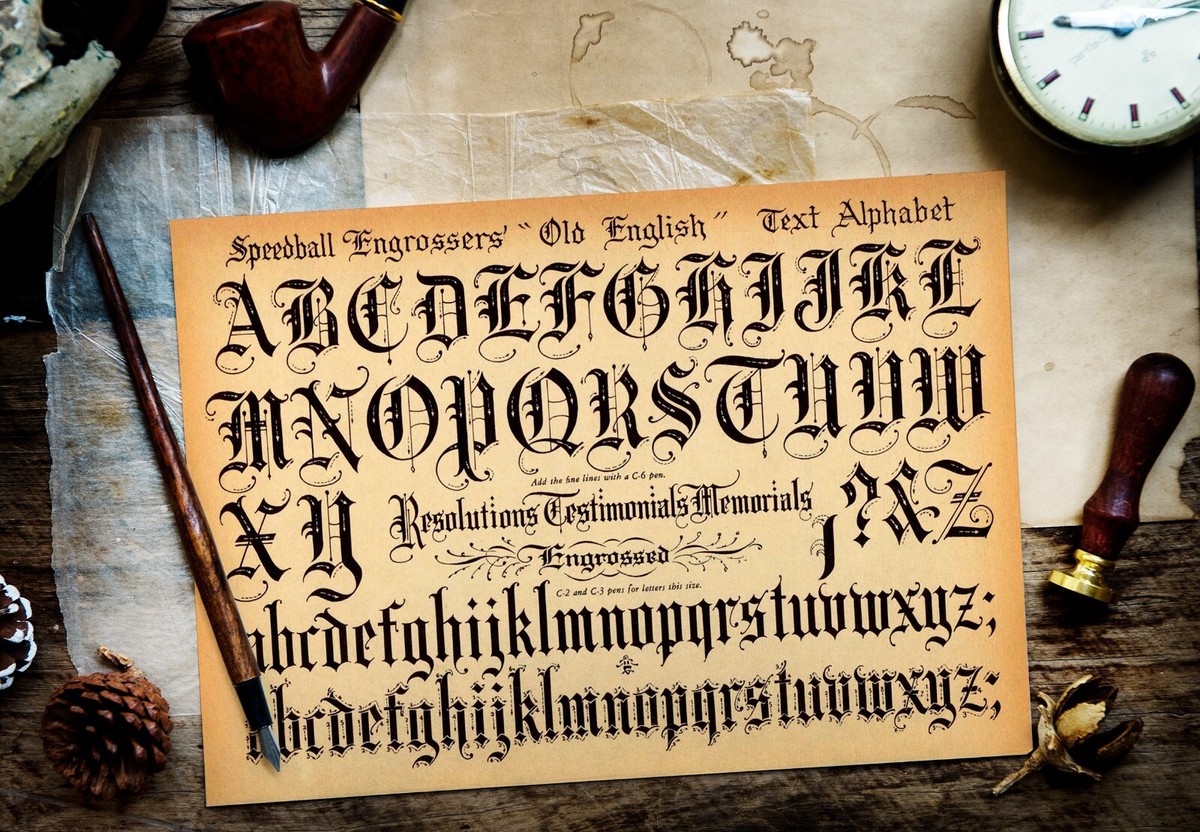 Speedball Engrossers' "Old English" Text Alphabet
ABCDEFGHIJKL
MNOPQRSTUVW
Add the fine lines with a C-6 pen.
XY Resolutions Testimonials Memorials ,?&Z
Engrossed
C-2 and C-3 pens for letters this size.
abcdefghijklmnopqrstuvwxyz;
abcdefghijklmnopqrstuvwxyz;